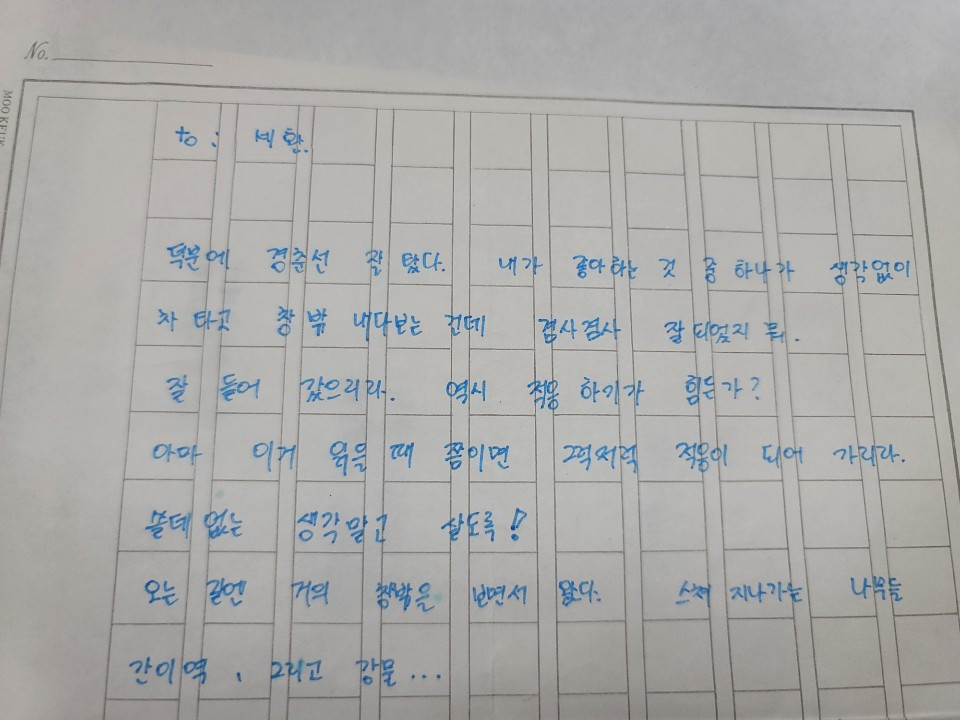 No.
MOO KEUK
to : 세환.
덕분에 경춘선 잘 탔다. 내가 좋아하는 것 중 하나가 생각없이
차 타고 창 밖 내다보는 건데 겸사겸사 잘 되었지 뭐.
잘 들어 갔으리라. 역시 적응 하기가 힘든가?
아마 이거 읽을 때 쯤이면 그럭저럭 적응이 되어 가리라.
쓸데 없는 생각말고 살도록!
오는 길엔 거의 창밖을 보면서 왔다. 스쳐 지나가는 나무들
간이역, 그리고 강물...